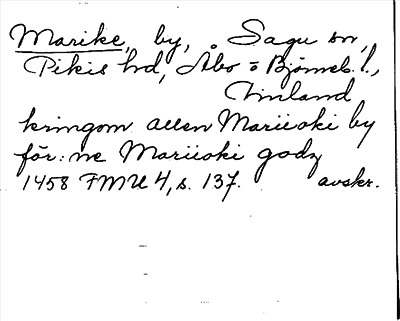 Marike, by, Sagu sn,
Pikis hd, Åbo o Björneb. l.,
Finland
kringom allen Mariioki by
för: ne Mariioki godz
1458 FMU 4, s. 137. avskr.